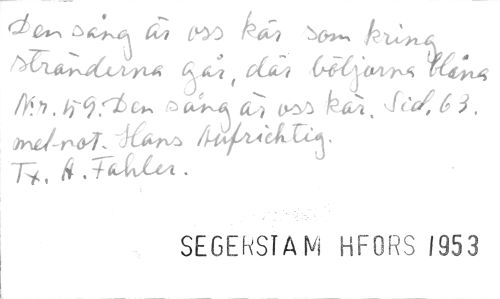 Den sång är oss kär som kring
stränderna går, där böljorna blåna
N:r. 59. Den sång är oss kär. Sid. 63.
mel-not. Hans Aufrichtig.
Tx. A. Fahler.
SEGERSTAM HFORS 1953